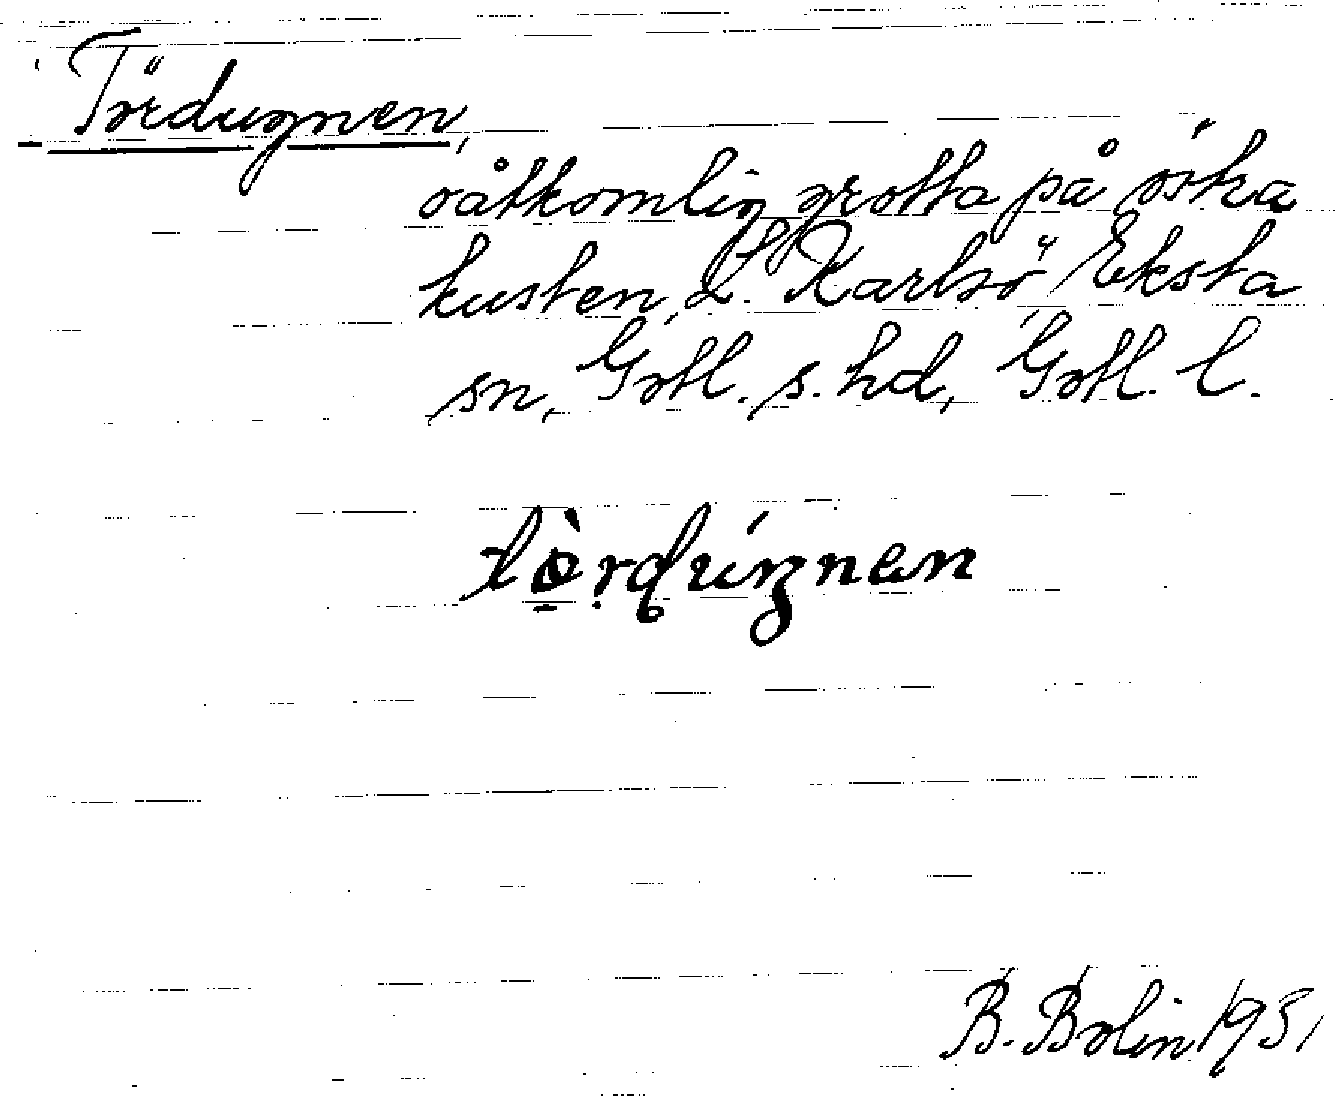 Tördugnen,
oåtkomlig grotta på östra
kusten, L. Karlsö, Eksta
sn, Gotl. s. hd, Gotl. l.
B. Bolin 1951